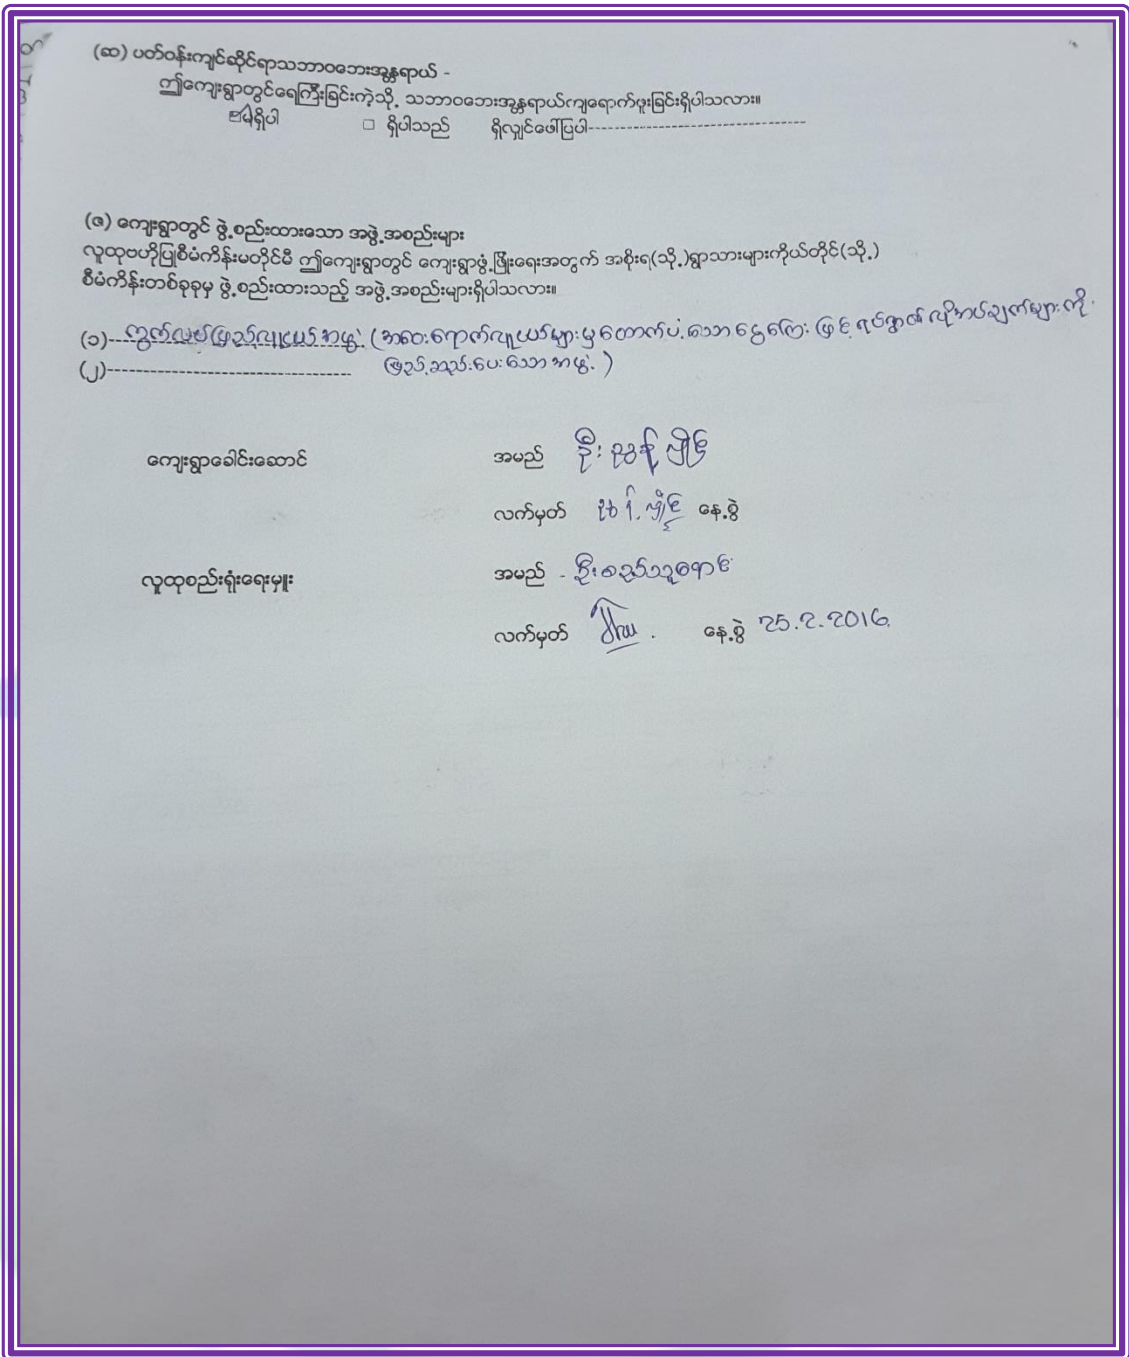 (ဆ) ပတ်ဝန်းကျင်ဆိုင်ရာသဘာဝဘေးအန္တရာယ် -
ဤကျေးရွာတွင်ရေကြီးခြင်းကဲ့သို့ သဘာဝဘေးအန္တရာယ်ကျရောက်ဖူးခြင်းရှိပါသလား။
☑ မရှိပါ □ ရှိပါသည် ရှိလျှင်ဖေါ်ပြပါ---------------------------------
(ဇ) ကျေးရွာတွင် ဖွဲ့စည်းထားသော အဖွဲ့အစည်းများ
လူထုဗဟိုပြုစီမံကိန်းမတိုင်မီ ဤကျေးရွာတွင် ကျေးရွာဖွံ့ဖြိုးရေးအတွက် အစိုးရ(သို့)ရွာသားများကိုယ်တိုင်(သို့)
စီမံကိန်းတစ်ခုခုမှ ဖွဲ့စည်းထားသည့် အဖွဲ့အစည်းများရှိပါသလား။
(၁)--- ကွက်လပ်ဖြည့်လူငယ်အဖွဲ့ (အဝေးရောက်လူငယ်များမှထောက်ပံ့သောငွေကြေးဖြင့် ရပ်ရွာ၏လိုအပ်ချက်များကို
(၂)----------------------------------- ဖြည့်ဆည်းပေးသောအဖွဲ့)
ကျေးရွာခေါင်းဆောင် အမည် ဦးညွန့်လှိုင်
လက်မှတ် ညွန့်လှိုင် နေ့စွဲ
လူထုစည်းရုံးရေးမှူး အမည် - ဦးစည်သူအောင်
လက်မှတ် နေ့စွဲ 25.2.2016.